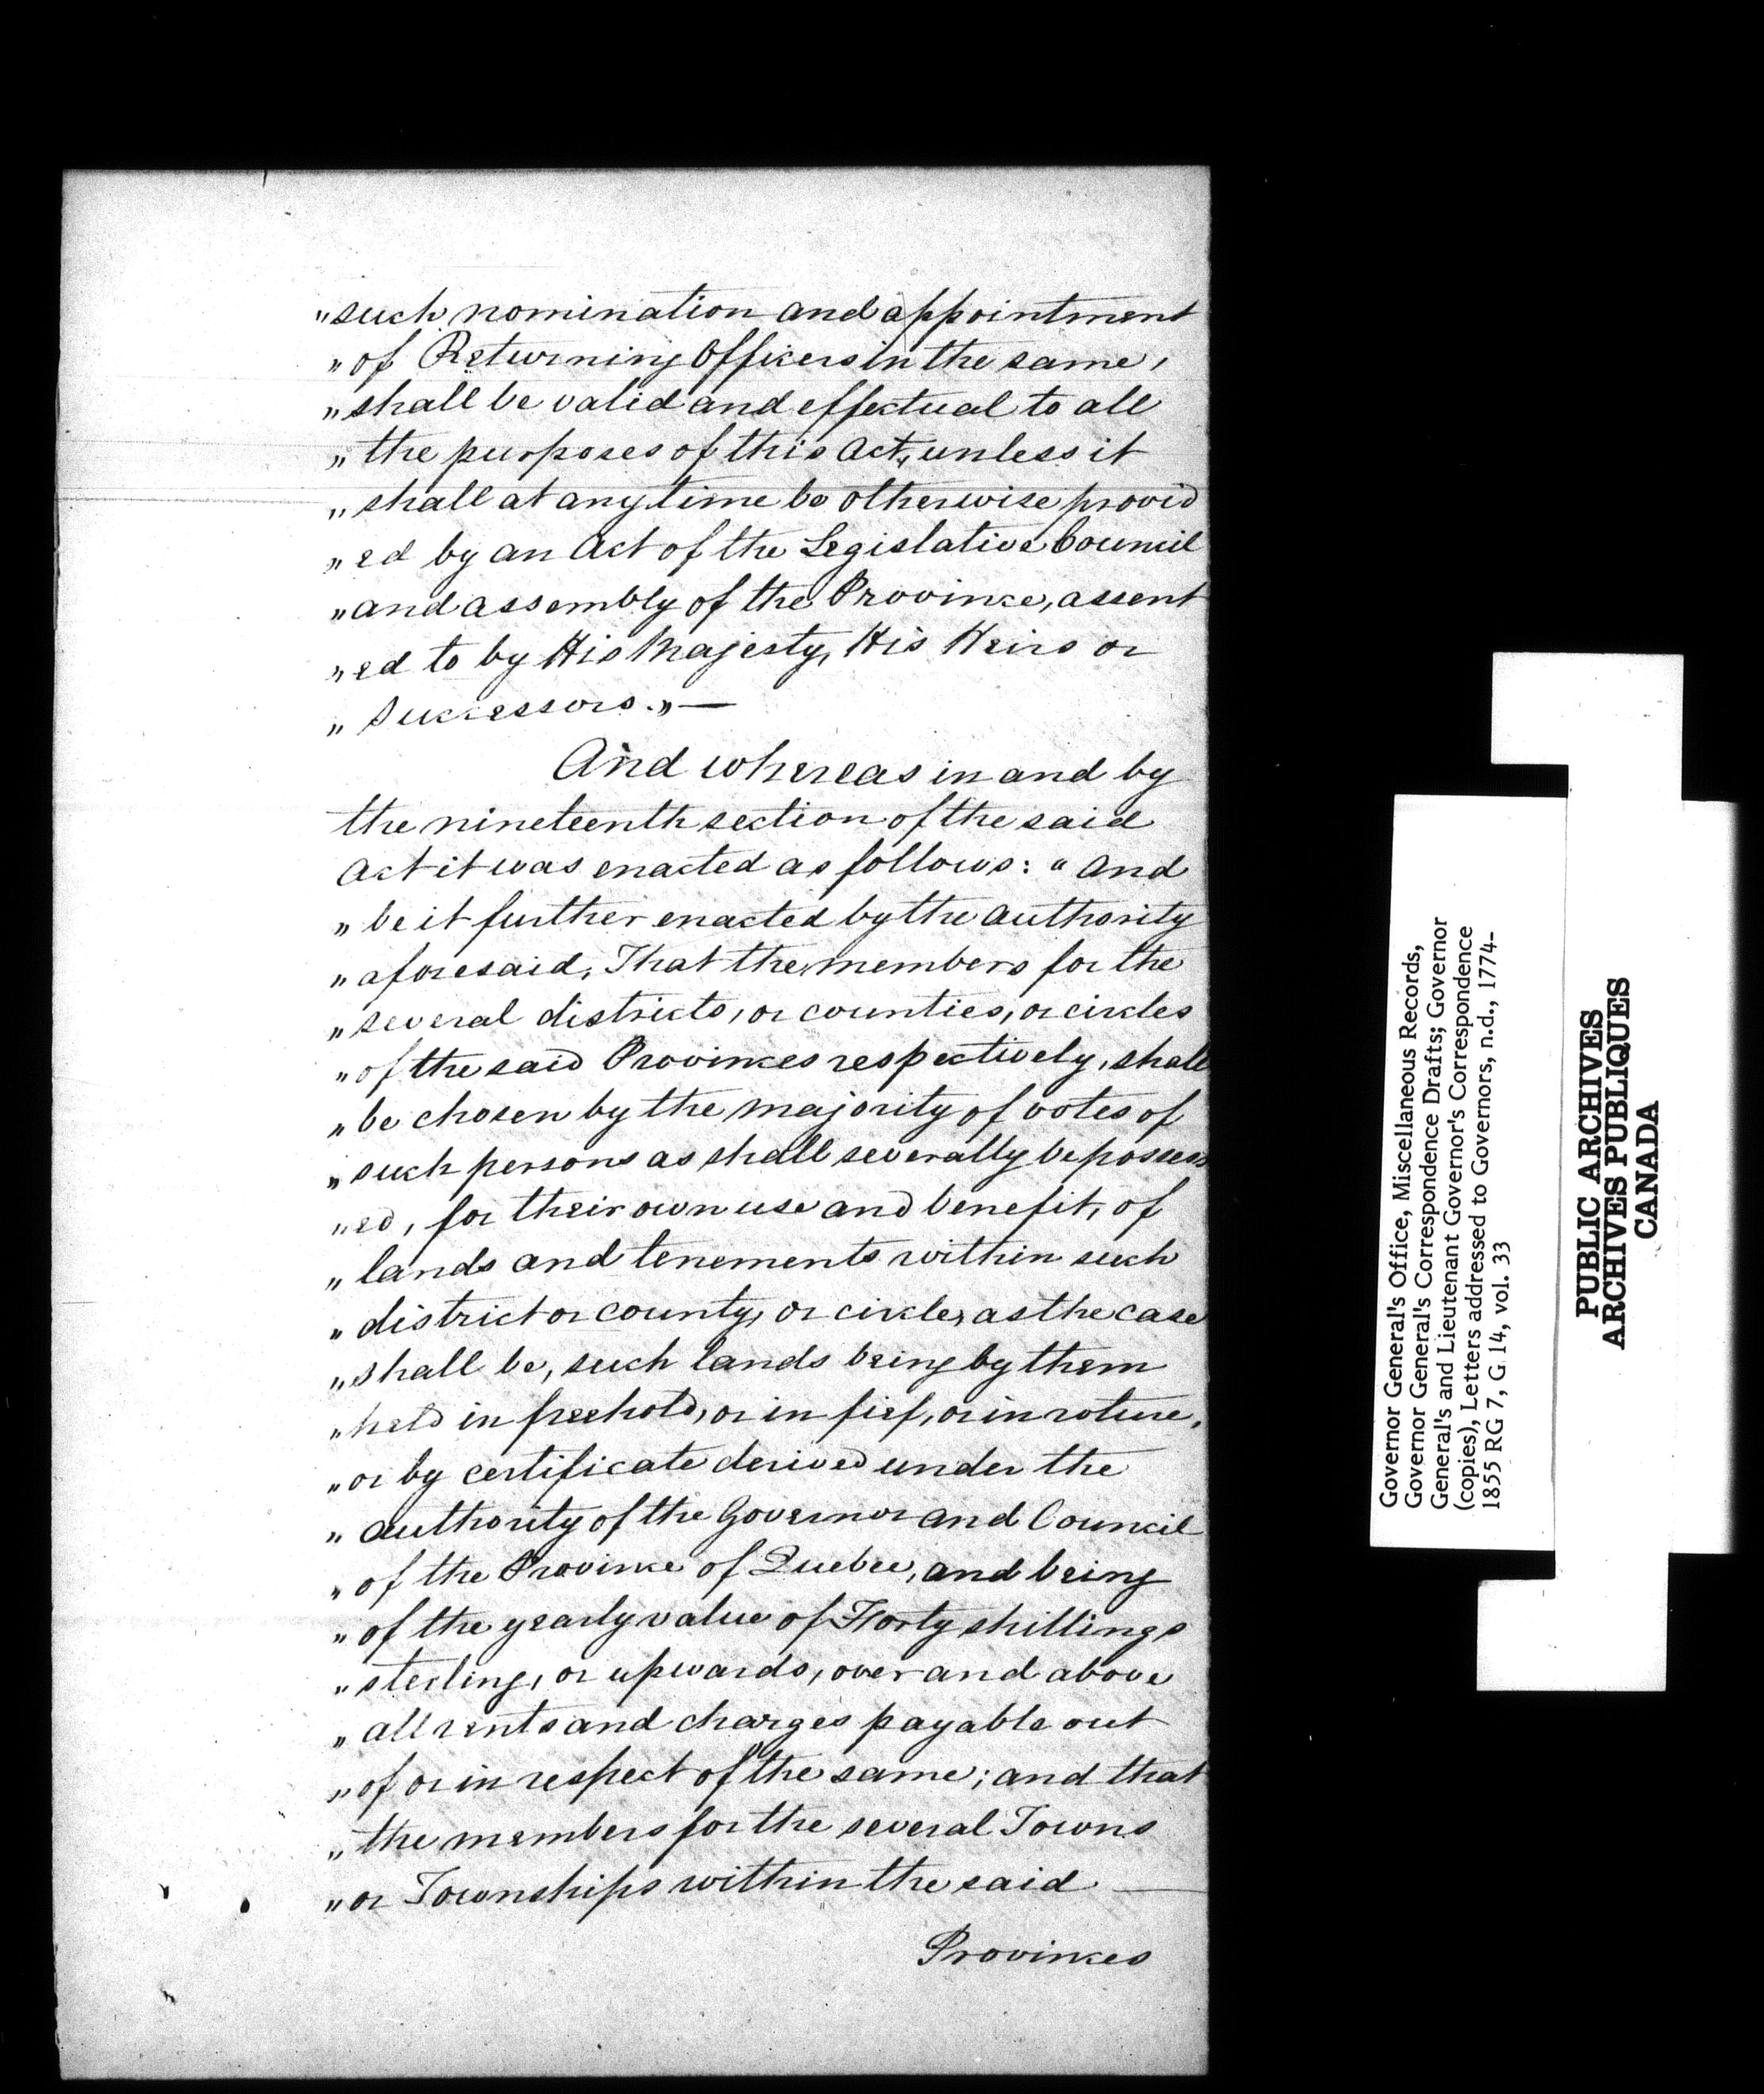 "such nomination and appointment
"of Returning Officers in the same,
"shall be valid and effectual to all
"the purposes of this Act, unless it
"shall at any time be otherwise provid
"ed by an Act of the Legislative Council
"and assembly of the Province, assent
"ed to by His Majesty, His Heirs or
"Successors."—
And whereas in and by
the nineteenth section of the said
Act it was enacted as follows: "And
"be it further enacted by the authority
"aforesaid, That the members for the
"several districts, or counties, or circles
"of the said Provinces respectively, shall
"be chosen by the majority of votes of
"such persons as shall severally be possess
"ed, for their own use and benefit, of
"lands and tenements within such
"district or county, or circle, as the case
"shall be, such lands being by them
"held in freehold, or in fief, or in roture,
"or by certificate derived under the
"authority of the Governor and Council
"of the Province of Quebec, and being
"of the yearly value of Forty shillings
"sterling, or upwards, over and above
"all rents and charges payable out
"of or in respect of the same; and that
"the members for the several Towns
"or Townships within the said —
Provinces
Governor General's Office, Miscellaneous Records,
Governor General's Correspondence Drafts; Governor
General's and Lieutenant Governor's Correspondence
(copies), Letters addressed to Governors, n.d., 1774-
1855 RG 7, G 14, vol. 33
PUBLIC ARCHIVES
ARCHIVES PUBLIQUES
CANADA